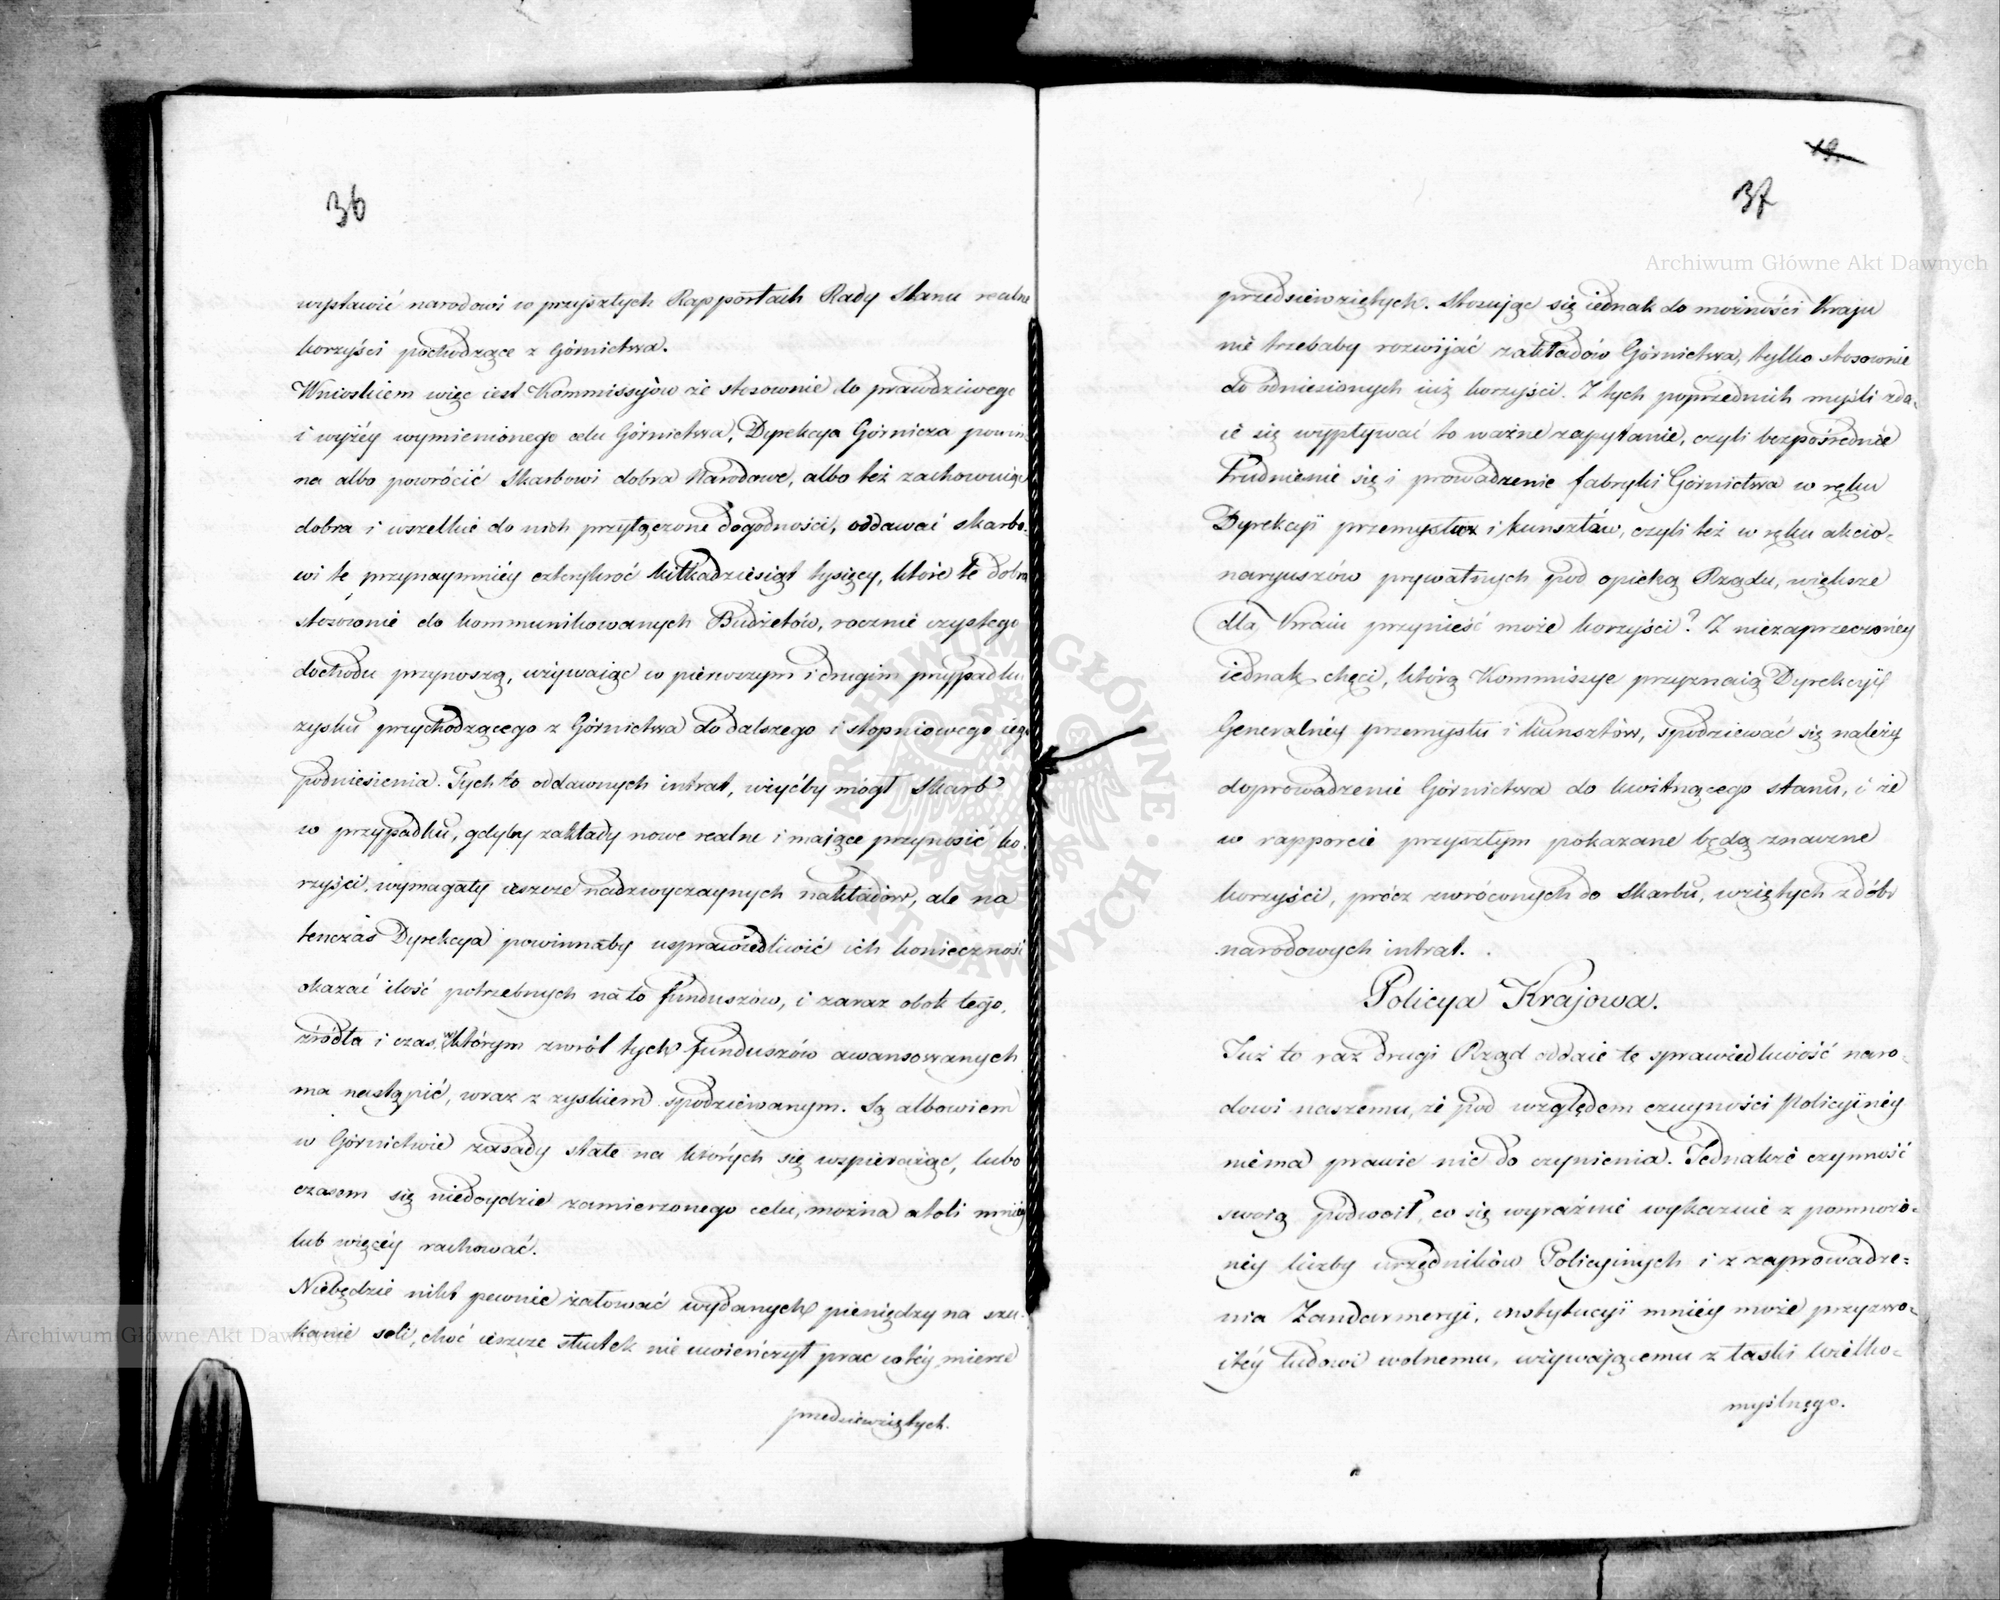 36
wystawić narodowi w przyszłych Rapportach Rady Stanu realne
korzyści pochodzące z Górnictwa.
Wnioskiem więc iest Kommissyiów że stosownie do prawdziwego
i wyżéy wymienionego celu Górnictwa, Dyrekcya Górnicza powin-
na albo powrócić Skarbowi dobra Narodowe, albo też zachowuiąc
dobra i wszelkie do nich przyłączone dogodności, oddawać skarbo-
wi te przynaymniéy czterykroć kilkadziesiąt tysięcy, które te dobra
stosownie do kommunikowanych Budżetów, rocznie czystego
dochodu przynoszą, używaiąc w pierwszym i drugim przypadku
zysku przychodzącego z Górnictwa do dalszego i stopniowego iego
podniesienia. Tych to oddawnych intrat, użyćby mógł Skarb
w przypadku, gdyby zakłady nowe realne i maiące przynosić ko-
rzyści, wymagały ieszcze nadzwyczaynych nakładów, ale na
tenczas Dyrekcya powinnaby usprawiedliwić ich konieczność
okazać ilość potrzebnych na to funduszów, i zaraz obok tego,
źródła i czas, w którym zwrót tych funduszów awansowanych
ma nastąpić, wraz z zyskiem spodziewanym. Są albowiem
w Górnictwie zasady stałe na których się wspieraiąc, lubo
czasem się niedoydzie zamierzonego celu, można atoli mniéy
lub więcéy rachować.
Niebędzie nikt pewnie żałować wydanych pieniędzy na szu-
kanie soli, choć ieszcze skutek nie uwieńczył prac w téy mierze
przedsięwziętych.
19.
37
przedsięwziętych. Stosując się iednak do możności Kraju
nie trzebaby rozwijać zakładów Górnictwa, tylko stosownie
do odniesionych iuż korzyści. Z tych poprzednich myśli zda-
ie się wypływać to ważne zapytanie, czyli bezpośrednie
trudnienie się i prowadzenie fabryki Górnictwa w ręku
Dyrekcyi przemysłu i kunsztów, czyli też w ręku akcio-
naryuszów prywatnych pod opieką Rządu, większe
dla Kraiu przynieść może korzyści? Z niezaprzeczonéy
iednak chęci, którą Kommissye przyznaią Dyrekcyi
Generalnéy przemysłu i kunsztów, spodziewać się należy
doprowadzenie Górnictwa do kwitnącego stanu, i że
w rapporcie przyszłym pokazane będą znaczne
korzyści, prócz zwróconych do skarbu, wziętych z dóbr
narodowych intrat.
Policya Krajowa.
Już to raz drugi Rząd oddaie tę sprawiedliwość naro-
dowi naszemu, że pod względem czuyności Policyinéy
niéma prawie nic do czynienia. Jednakże czynność
swoią podwoił, co się wyraźnie wykazuie z pomnożo-
néy liczby urzędników Policyinych i z zaprowadze-
nia Żandarmeryi, instytucyi mniéy może przyzwo-
itéy ludowi wolnemu, używającemu z łaski wielko-
myślnego.
Archiwum Główne Akt Dawnych
Archiwum Główne Akt Dawnych
ARCHIWUM GŁÓWNE AKT DAWNYCH